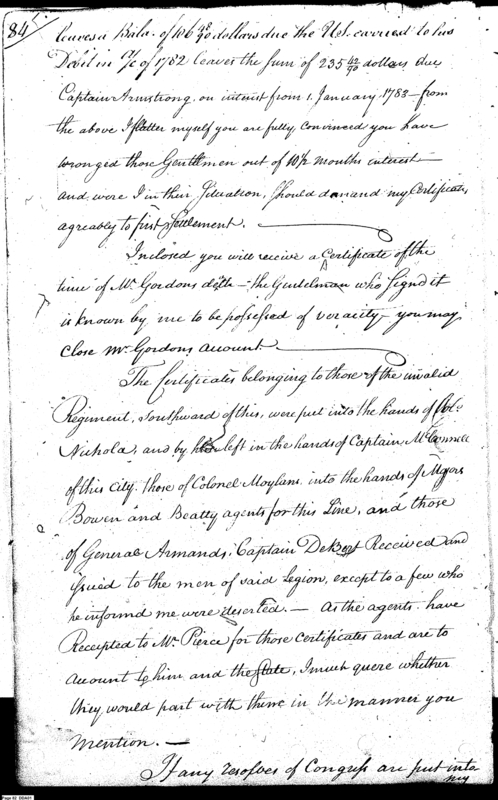 84
leaves a Bala. of 106 48/90 dollars due the U.S. carried to his
Debit in a/c of 1782 leaves the sum of 235 42/90 dollars due
Captain Armstrong, on interest from 1. January 1783 - from
the above I flatter myself you are fully convinced you have
wronged those Gentlemen out of 10 1/2 months interest -
and were I in their Situation, should demand my Certificates,
agreably to first Settlement.
Inclosed you will receive a Certificate of the
time of Mr. Gordons deth - the Gentelman who signd it
is known by me to be possessed of veracity - you may
close Mr Gordons account.
The Certificates belonging to those of the invalid
Regiment, Southward of this, were put into the hands of Colo.
Nichola, and by him left in the hands of Captain McConnell
of this city. those of Colonel Moylans into the hands of Majors
Bowen and Beatty agents for this Line, and those
of General Armands, Captain DeBert Received and
issued to the men of said Legion, except to a few who
he informed me were deserted. - As the agents have
Receipted to Mr. Pierce for those certificates and are to
account to him and the State, I much quere whether
they would part with them in the manner you
mention. -
If any resolves of Congress are put into
my
Page 82